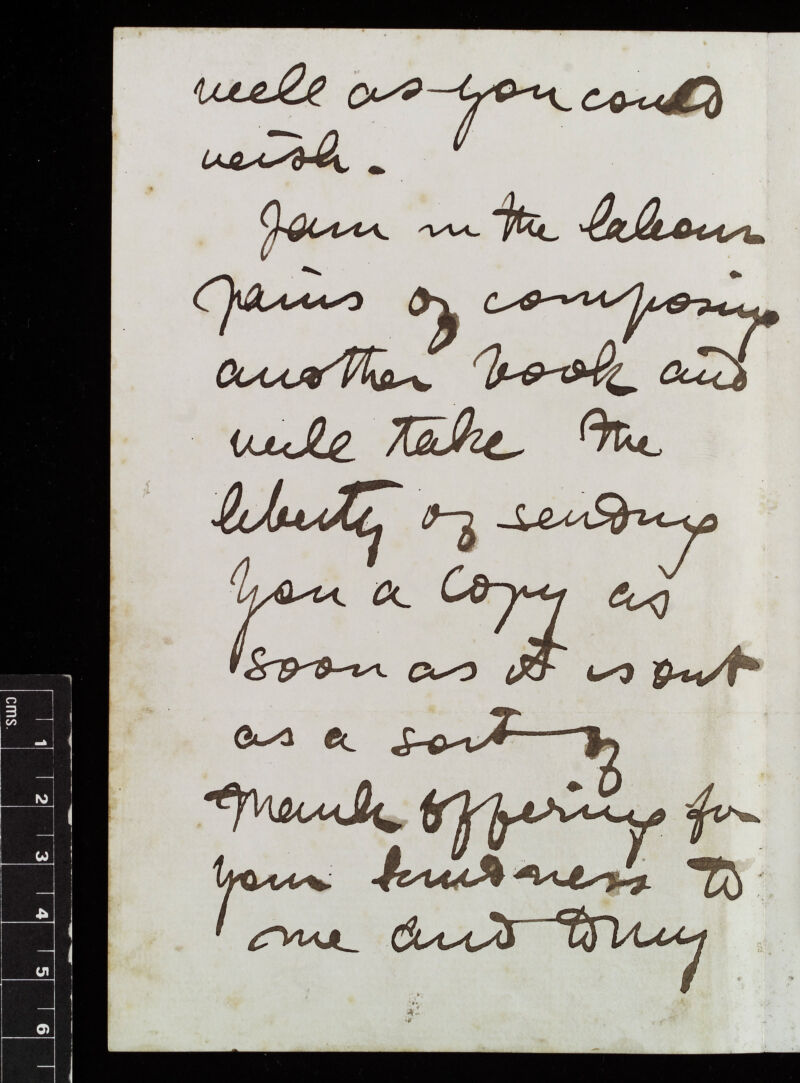 well as you could
wish.
I am in the labour
pains of composing
another book and
will take the
liberty of sending
you a copy as
soon as it is out
as a sort of
thank offering for
your kindness to
me and to my
cms.
1
2
3
4
5
6